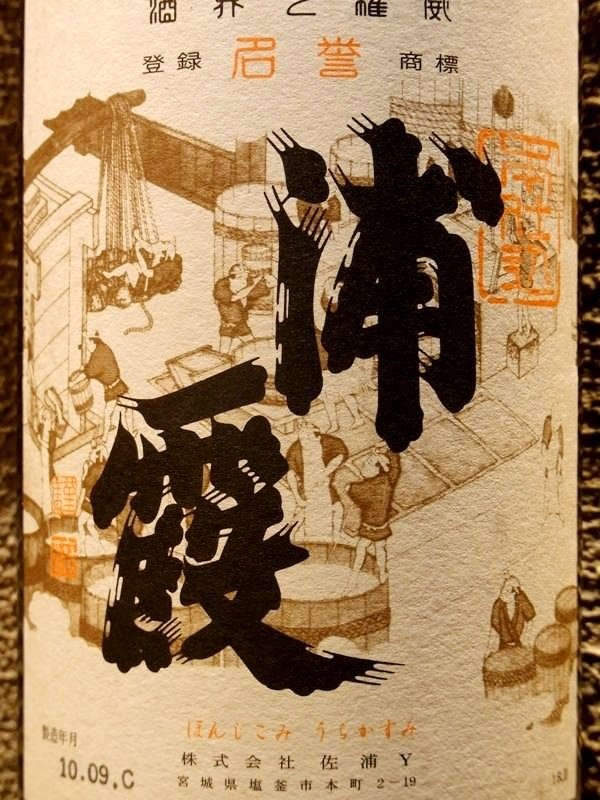 酒界之権威
登録 名誉 商標
浦霞
ほんじこみ うらかすみ
製造年月
10.09.C
株式会社佐浦Y
宮城県塩釜市本町2-19